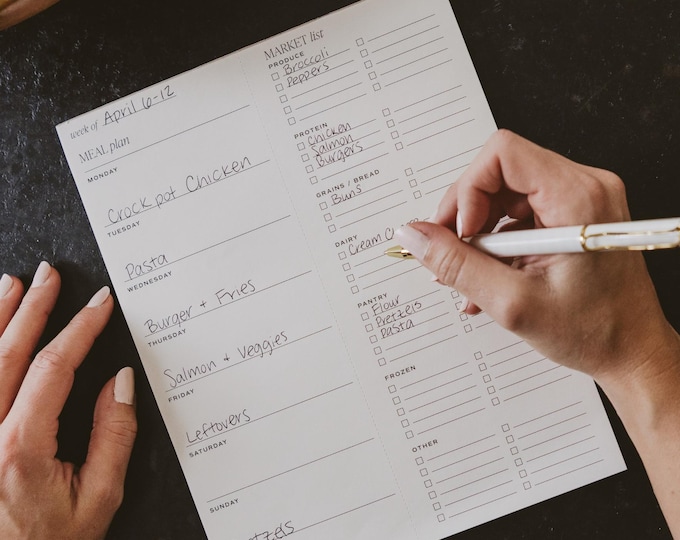 week of April 6-12
MEAL plan
MONDAY
Crockpot Chicken
TUESDAY
Pasta
WEDNESDAY
Burger + Fries
THURSDAY
Salmon + Veggies
FRIDAY
Leftovers
SATURDAY
SUNDAY
MARKET list
PRODUCE
Broccoli
Peppers
PROTEIN
Chicken
Salmon
Burgers
GRAINS / BREAD
Buns
DAIRY
Cream
PANTRY
Flour
Pretzels
Pasta
FROZEN
OTHER